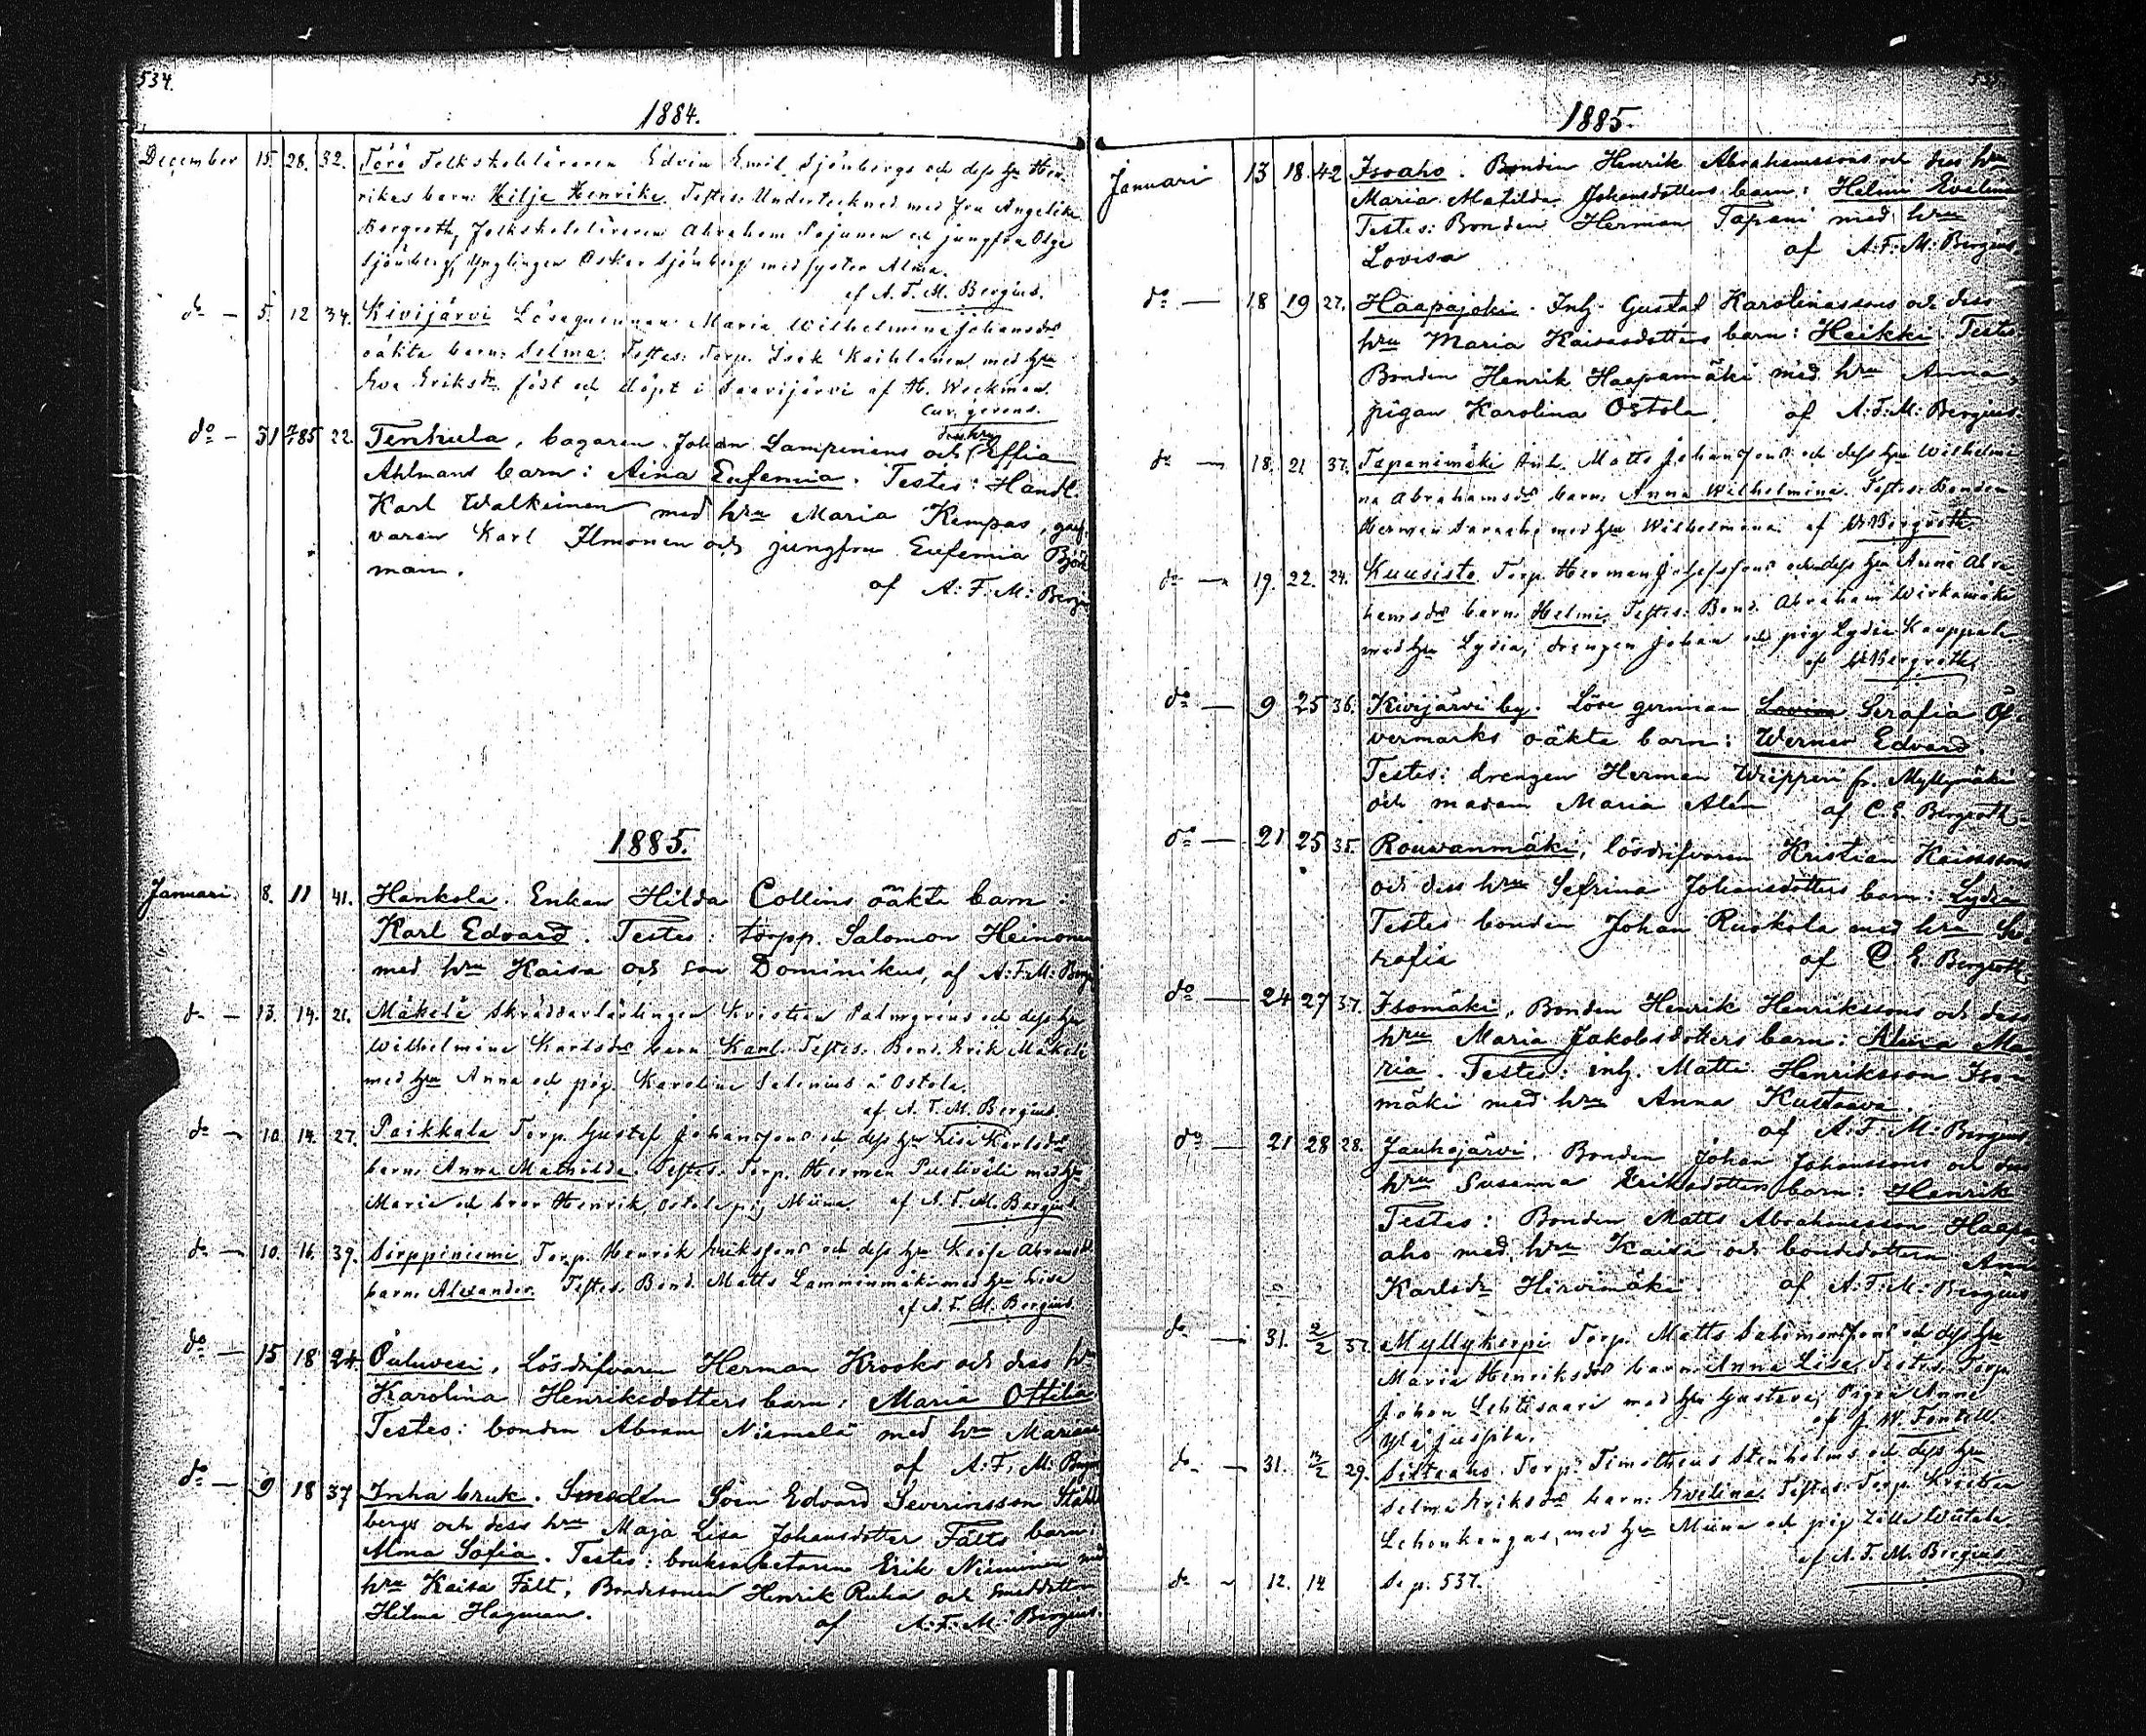 534.
1884.
December 15. 28. 32. Törö Folkskoleläraren Edvin Emil Sjönbergs och dess hu Hen-
rikas barn: Hilja Henrika. Testes: Undertecknad med fru Angelika
Bergroth, folkskoleläraren Abraham Pajunen och jungfru Olga
Sjönberg, Ynglingen Oskar Sjönberg med syster Alma.
af A. F. M. Bergius.
do — 5. 12 34. Kivijärvi Lösaqvinnan Maria Wilhelmina Johansdrs
oäkta barn: Selma. Testes: Torp. Isak Kaihlanen med hu
Eva Eriksdr. född och döpt i Saarijärvi af H. Weckman.
Cur. gerens.
do — 31 85 22. Tenhula, bagaren Johan Lampinens och dess hru Effia
Ahlmans barn: Aina Eufemia. Testes: Handl.
Karl Walkeinen med hru Maria Kempas, garf
varen Karl Ilmonen och jungfru Eufemia Björk
man.
af A: F: M: Bergi
1885.
Januari. 8. 11 41. Hankola. Enkan Hilda Collins oäkta barn:
Karl Edvard. Testes: torpp. Salomon Heinonen
med hru Kaisa och son Dominikus, af A: F: M: Berg
do — 13. 14. 21. Mäkelä Skräddarlärlingen Kristian Palmgréns och dess hu
Wilhelmina Karlsdrs barn Karl. Testes. Bond. Erik Mäkelä
med hu Anna och pig. Karolina Salenius å Ostola.
af A. F. M. Bergius
do — 10. 14. 27. Paikkala Torp. Gustaf Johanssons och dess hu Lisa Karlsdrs
barn: Anna Mathilda. Testes. Torp. Herman Puoliväli med hu
Maria och bror Henrik, Ostola pig Miina. af A. F. M. Bergius
do — 10. 16. 39. Sirppiniemi, Torp. Henrik Erikssons och dess hu Kaisa
barn: Alexander. Testes. Bond. Matts Lamminmäki med hu Lisa
af A. F. M. Bergius
do — 15 18 24. Ouluvesi, Lösdrifvaren Herman Krooks och dess hru
Karolina Henriksdotters barn: Maria Ottilia
Testes: bonden Abram Niemelä med hru Mariana
af A: F: M: Bergi
do — 9 18 37 Inha bruk. Smeden Sven Edvard Severinsson Ståhl
bergs och dess hru Maja Lisa Johansdotter Fälts barn:
Alma Sofia. Testes: bruksarbetaren Erik Nieminen med
hru Kaisa Fält, Bondesonen Henrik Ruha och smeddottern
Hilma Hagman.
af A: F: M: Bergius.
1885.
Januari 13 18. 42 Isoaho. Bonden Henrik Abrahamssons och dess hru
Maria Matilda Johansdotters barn: Helmi Evelina
Testes: Bonden Herman Tapani med hru
Lovisa af A: F: M: Bergius.
do — 18 19 27. Haapajoki. Inh. Gustaf Karolinassons och dess
hru Maria Kaisasdotters barn: Heikki. Testes
Bonden Henrik Haapamäki med hru Anna,
pigan Karolina Ostola. af A: F: M: Bergius.
do — 18. 21 37. Tapanimäki Inh. Matts Johanssons och dess hu Wilhelmi-
na Abrahamsdrs barn: Anna Wilhelmina. Testes: Bonden
Herman med hu Wilhelmina. af Bergroth
do — 19. 22. 24. Kuusisto. Torp. Herman Josefssons och dess hu Anna Abra-
hamsdrs barn: Helmi. Testes: Bond. Abraham Wirkamäki
med hu Lydia, drengen Johan och pig Lydia Kauppala
af Bergroth
do — 9 25 36. Kivijärvi by. Löse qvinnan Lovisa Serafia Öf-
vermarks oäkta barn: Werner Edvard.
Testes: drengen Herman Wripperi fr. Myllymäki
och madam Maria Alén af C. E. Bergroth.
do — 21 25 35. Rouvanmäki, lösdrifvaren Kristian Kaisassons
och dess hru Sefrina Johansdotters barn: Lydia
Testes bonden Johan Ruokola med hru Se-
rafia af C. E. Bergroth
do — 24 27 37. Isomäki, Bonden Henrik Henrikssons och dess
hru Maria Jakobsdotters barn: Alina Ma
ria. Testes: inh. Matti Henriksson Iso-
mäki med hru Anna Kustaava.
af A: F: M: Bergius
do — 21 28 28. Jauhojärvi, Bonden Johan Johanssons och dess
hru Susanna Eriksdotters barn: Henrik
Testes: Bonden Matts Abrahamsson Haapa
aho med hru Kaisa och bondedottern Ann
Karlsdr Hirvimäki. af A: F: M: Bergius
do — 31. 2/2 37. Myllykorpi Torp. Matts Salomonssons och dess hu
Maria Henriksdrs barn: Anna Lisa. Testes. Torp.
Johan Lehtisaari med hu Gustava, Pigan Anna
Yläjuspila. af J. W. Fontell.
do — 31. 29. Siltaaho. Torp. Timotheus Stenholms och dess hu
Selma Eriksdrs barn: Evelina. Testes: Torp.
Lehonkangas, med hu Miina och pig
af A. F. M. Bergius
do — 12. 14 Se p. 537.